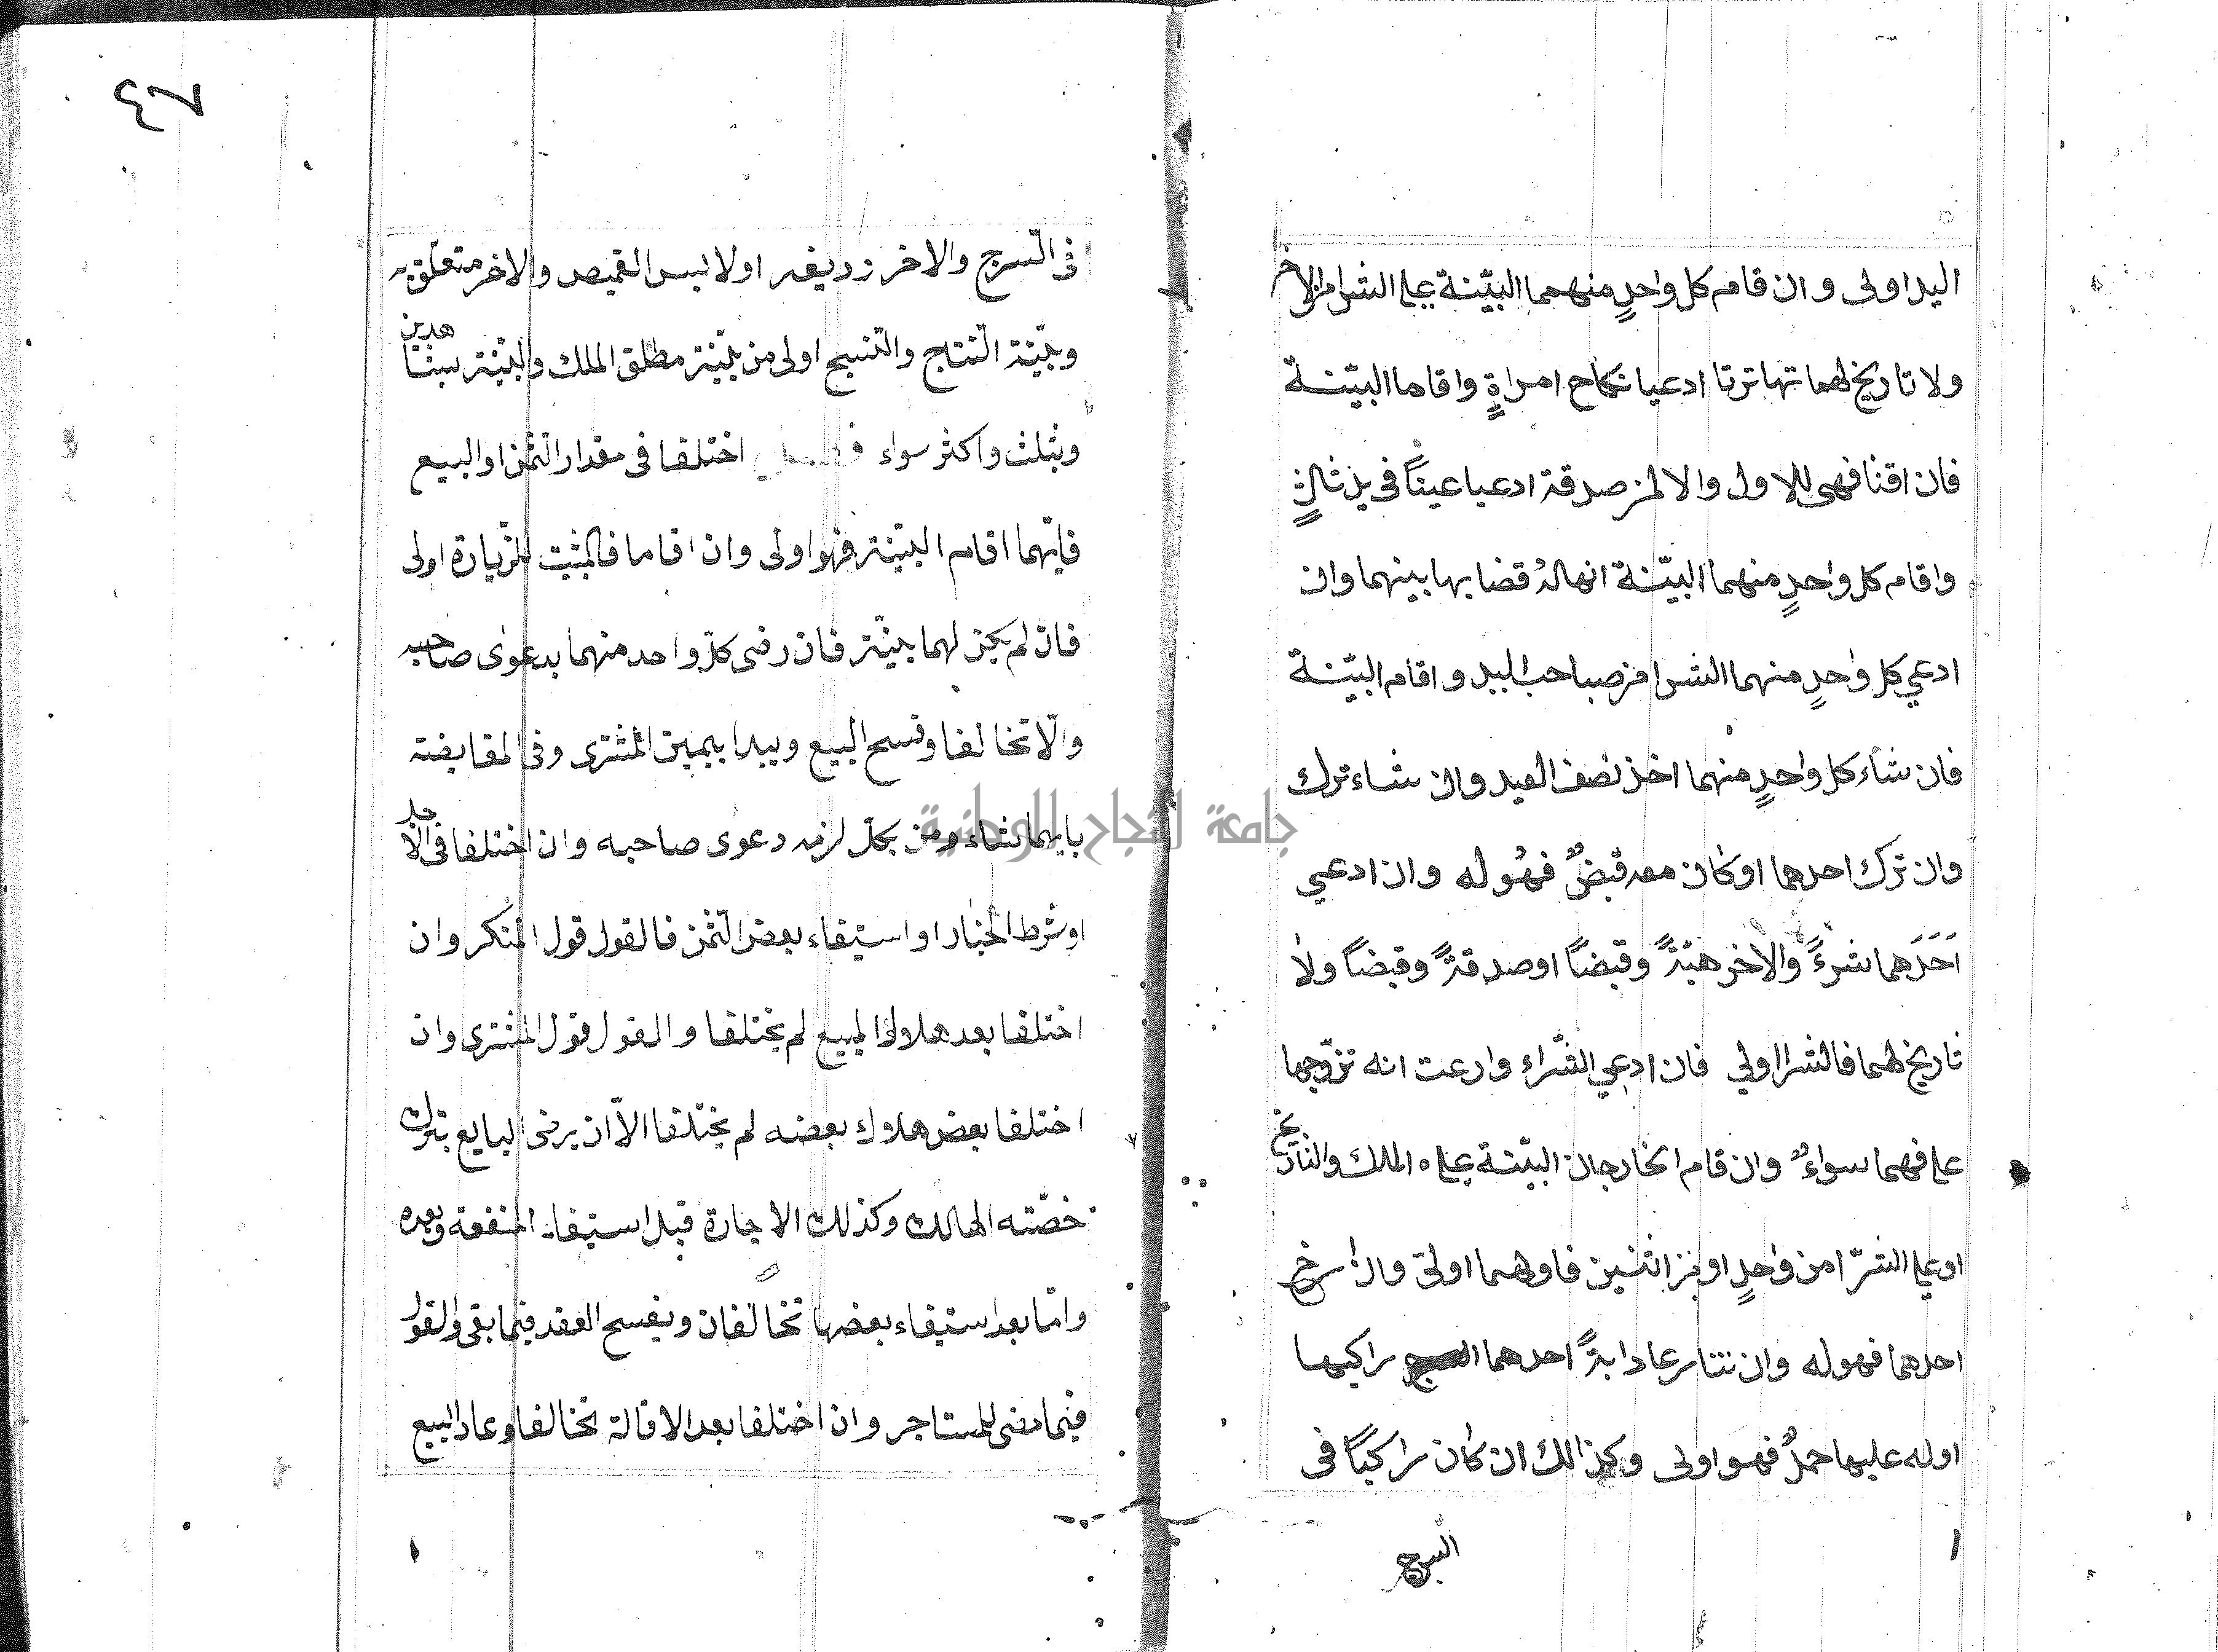 اليد اولى وان قام كل واحدٍ منهما البيّنة على الشرا من الاخر
ولا تاريخ لهما تهاترتا ادعيا نكاح امراةٍ واقاما البيّنة
فان اقتا فهى للاول والا لمن صدقة ادعيا عيناً فى يد ثالثٍ
واقام كل واحدٍ منهما البيّنة انها له قضا بها بينهما وان
ادعي كل واحدٍ منهما الشرا من صاحب اليد واقام البيّنة
فان شاء كل واحدٍ منهما اخذ نصف العبد وان شاء ترك
وان ترك احدهما او كان معه قبضٌ فهُو له وان ادعي
اَحَدَهما شرءً والاخر هبةً وقبضاً او صدقةً وقبضاً ولا
تاريخ لهما فالشرا اولي فان ادعي الشّراء وادعت انه تزوّجها
على فهما سواءٌ وان قام الخارجان البيّنة على ه الملك والتاريخ
او على الشرّا من واحدٍ او من اثنين فاولهما اولى وان ارخ
احدهما فهو له وان تنازعا دابةً احدهما راكبها
او له عليها حملٌ فهو اولى وكذالك ان كان راكباً فى
السرج
٨٤
فى السّرج والاخر رديفه او لابس القميص والاخر متعلّق به
وبيّنة النتاج والنسج اولى من بيّنة مطلق الملك والبيّنة بشاهدين
وبثلث واكثر سواء اختلفا فى مقدار الثّمن او البيع
فايّهما اقام البيّنة فهو اولى وان اقاما فالمثبت للزّيادة اولى
فان لم يكن لهما بيّنة فان رضى كلّ واحد منهما بدعوى صاحبه
والّا تخالفا وفسح البيع ويبدا بيمين المشترى وفى المقايضة
بايهما شاء ومن نكل لزمه دعوى صاحبه وان اختلفا فى الاجل
او شرط الخيار او استيفاء بعض الثّمن فالقول قول المنكر وان
اختلفا بعد هلاك المبيع لم يختلفا والقول قول المشترى وان
اختلفا بعض هلاك بعضه لم يختلفا الّا ان يرضى البايع بترك
خصّته الهالك وكذلك الاجارة قبل استيفاء المنفعة وبعده
وامّا بعد استيفاء بعضها تخالفان ويفسح العقد فيما بقى والقول
فيما مضى للمستاجر وان اختلفا بعد الاقالة تخالفا وعاد البيع
جامعة النجاح الوطنية